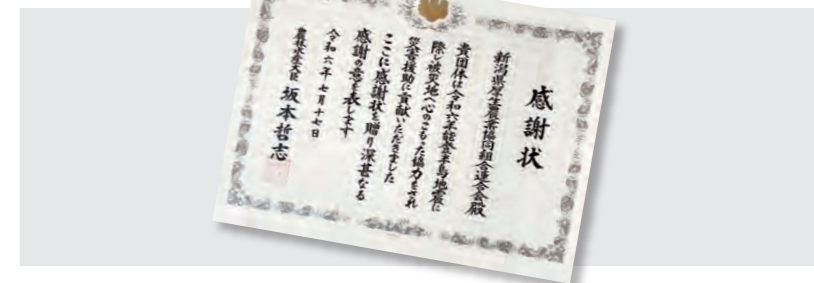 感謝状
新潟県厚生農業協同組合連合会殿
貴団体は令和六年能登半島地震に
際し被災地へ心のこもった協力をされ
災害援助に貢献いただきました
ここに感謝状を贈り深甚なる
感謝の意を表します
令和六年七月十七日
農林水産大臣 坂本哲志